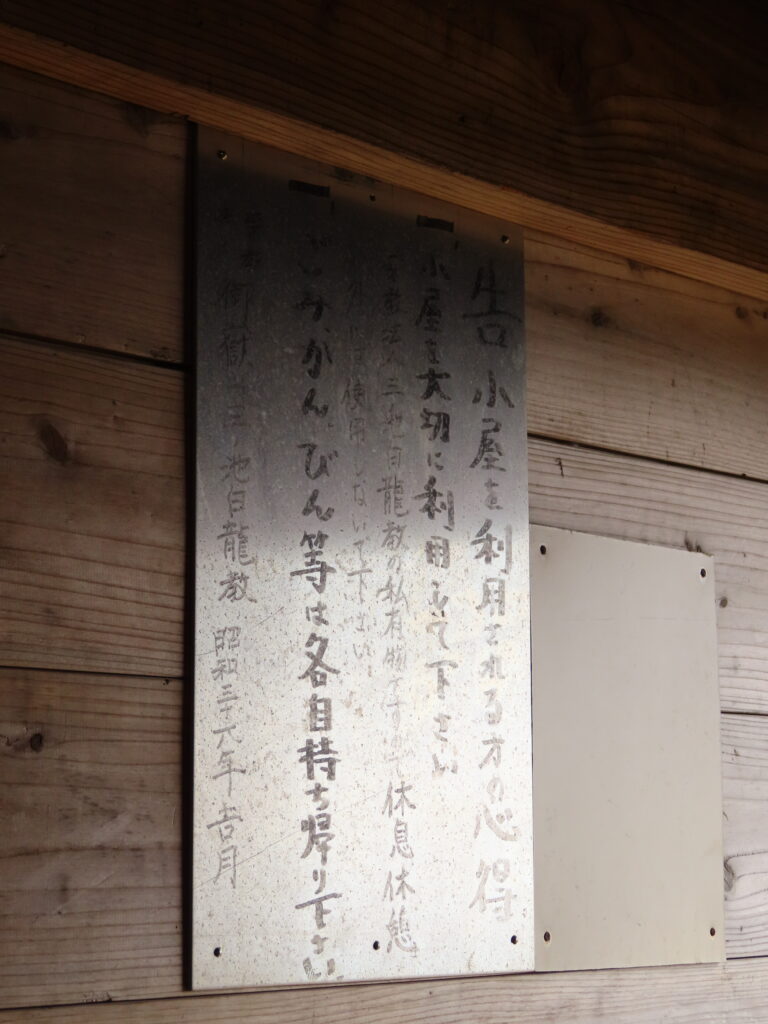 告 小屋を利用される方の心得
一 小屋を大切に利用して下さい
宗教法人三池白龍教の私有物ですので休息休憩
以外には使用しないで下さい
一 ごみ、かん、びん等は各自持ち帰り下さい
御嶽山三ノ池白龍教 昭和三十六年吉月